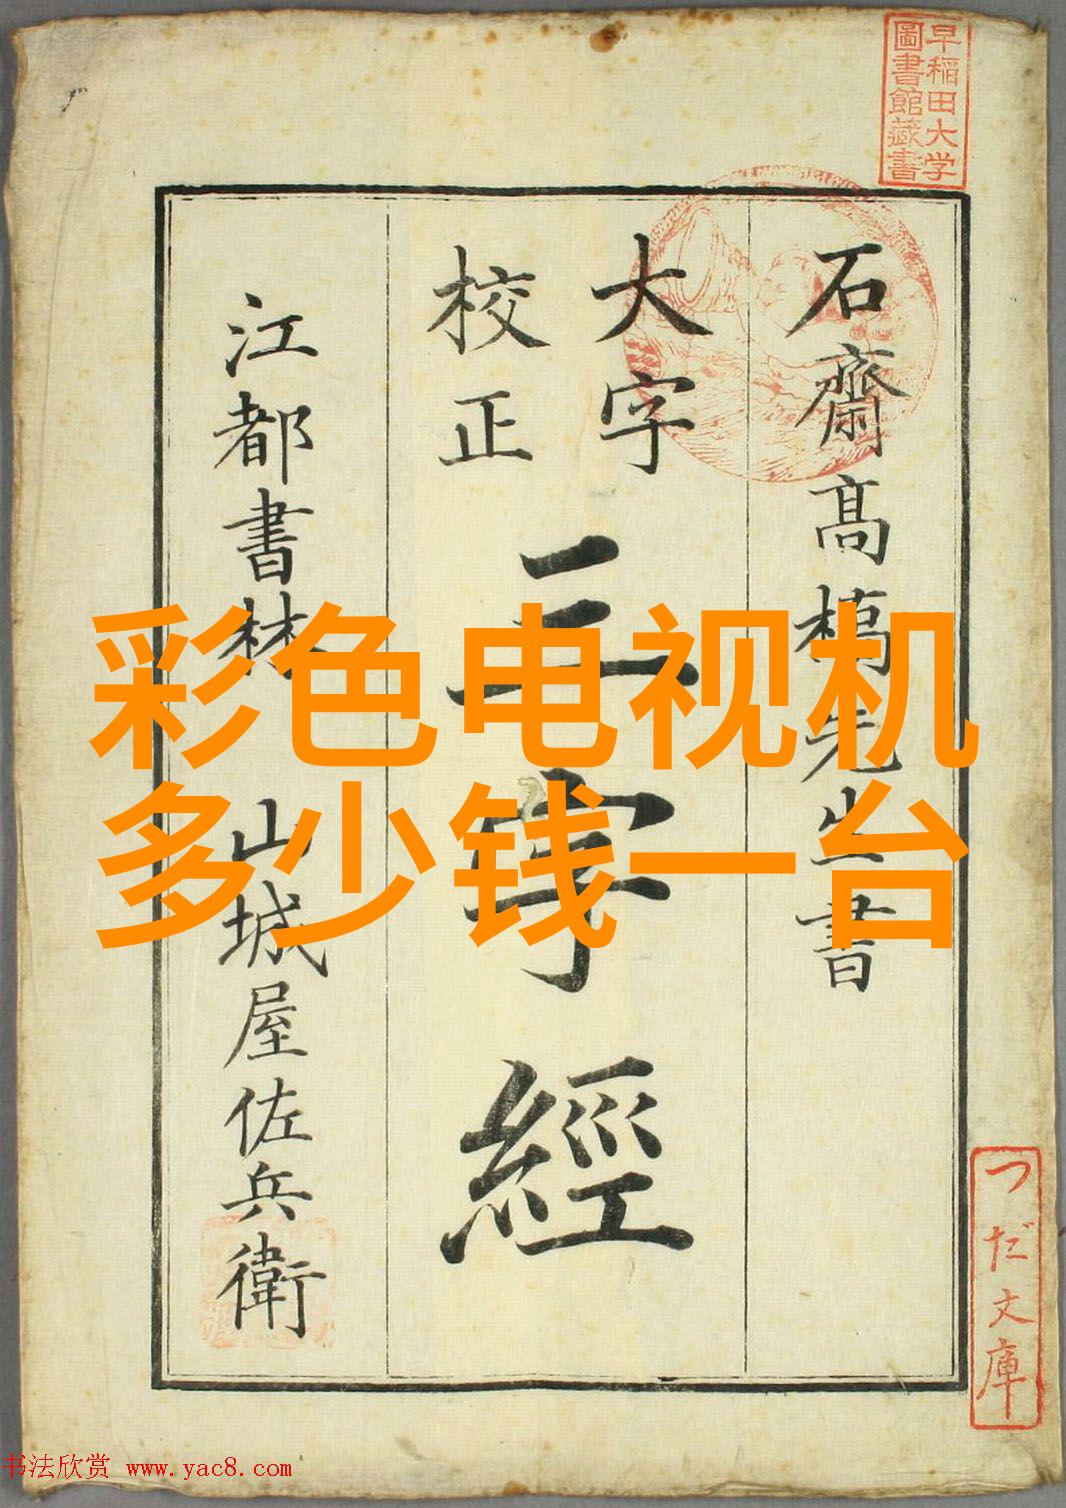 早稲田大学
圖書館藏書
石齋高槗先生書
大字
校正
三字經
江都書林 山城屋佐兵衛
彩色电视机
多少钱一台
つだ文庫
书法欣赏 www.yac8.com